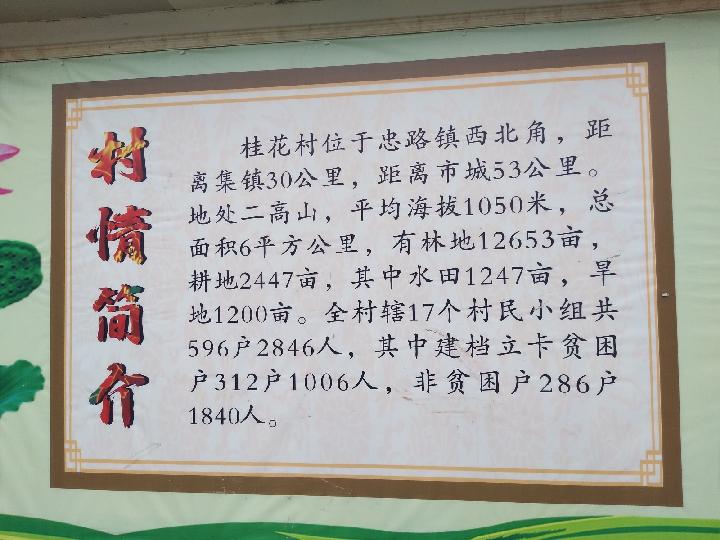 村情简介
桂花村位于忠路镇西北角，距
离集镇30公里，距离市城53公里。
地处二高山，平均海拔1050米，总
面积6平方公里，有林地12653亩，
耕地2447亩，其中水田1247亩，旱
地1200亩。全村辖17个村民小组共
596户2846人，其中建档立卡贫困
户312户1006人，非贫困户286户
1840人。